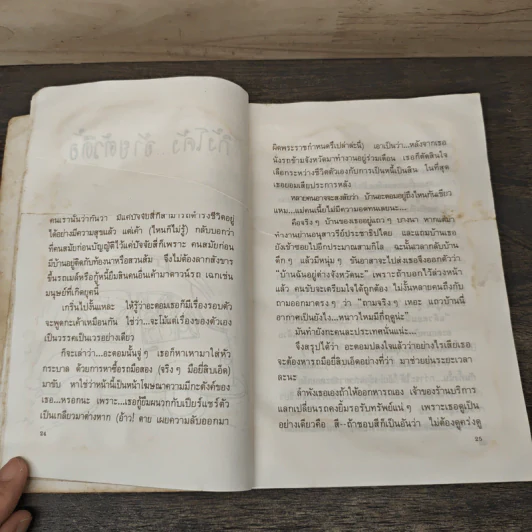 คนเรานั้นว่ากันว่า มีแค่ปัจจัยสี่ก็สามารถดำรงชีวิตอยู่
ได้อย่างมีความสุขแล้ว แต่เค้า (ไหนก็ไม่รู้) กลับบอกว่า
ที่คนสมัยก่อนบัญญัติไว้แค่ปัจจัยสี่ก็เพราะ คนสมัยก่อน
มีบ้านอยู่ติดกับท้องนาหรือสวนส้ม จึงไม่ต้องตกสังขาร
ขึ้นรถเมล์หรือกู้หนี้ยืมสินคนอื่นเค้ามาดาวน์รถ เฉกเช่น
มนุษย์ที่เกิดยุคนี้
เกริ่นไปงั้นแหละ ให้รู้ว่าอะตอมเธอก็มีเรื่องรอบตัว
จะพูดกะเค้าเหมือนกัน ใช่ว่า...จะโม้แต่เรื่องของตัวเอง
เป็นวรรคเป็นเวรอย่างเดียว
ก็จะเล่าว่า...อะตอมนั้นจู่ๆ เธอก็หาเหามาใส่หัว
กระบาล ด้วยการหาซื้อรถมือสอง (จริงๆ มือยี่สิบเอ็ด)
มาขับ หาใช่ว่าหน้านี้เป็นหน้าโฆษณาความมีกะตังค์ของ
เธอ...หรอกนะ เพราะ...เธอกู้ยืมผนวกกับเปียร์แชร์ตัว
เป็นเกลียวมาต่างหาก (อ้าว! ตาย เผยความลับออกมา
24
ผิดพระราชกำหนดรึเปล่าล่ะนี่) เอาเป็นว่า...หลังจากเธอ
นั่งรถข้ามจังหวัดมาทำงานอยู่ร่วมเดือน เธอก็ตัดสินใจ
เลือกระหว่างชีวิตตัวเองกับการเป็นหนี้เป็นสิน ในที่สุด
เธอยอมเลือกประการหลัง
หลายคนอาจจะสงสัยว่า บ้านอะตอมอยู่ถึงไหนกันเชียว
แหม...แม่คนเนี้ยไม่มีความอดทนเลยนะ...
คือจริงๆ บ้านของเธออยู่แถวๆ บางนา หากแต่มา
ทำงานย่านอนุสาวรีย์ประชาธิปไตย และแถมบ้านเธอ
ยังเข้าซอยไปอีกประมาณสามกิโล ฉะนั้นเวลากลับบ้าน
ดึกๆ แล้วมีหนุ่มๆ ขันอาสาจะไปส่งเธอจึงออกตัวว่า
"บ้านฉันอยู่ต่างจังหวัดนะ" เพราะถ้าบอกไว้ล่วงหน้า
แล้ว คนรับจะเตรียมใจได้ถูกต้อง ไม่งั้นหลายคนถึงกับ
ถามออกมาตรงๆ ว่า "ถามจริงๆ เหอะ แถวบ้านนี่
อากาศเป็นยังไง...หนาวไหมมีกี่ฤดูน่ะ"
มันทำยังกะคนละประเทศนั่นแน่ะ...
จึงสรุปได้ว่า อะตอมปลงใจแล้วว่าอย่างไรเสียเธอ
จะต้องหารถมือยี่สิบเอ็ดอย่างที่ว่า มาช่วยย่นระยะเวลา
ละนะ
ลำพังเธอเองถ้าให้ออกหารถเอง เจ้าของร้านบริการ
แลกเปลี่ยนรถคงยิ้มรอรับทรัพย์แน่ๆ เพราะเธอดูเป็น
อย่างเดียวคือ สี--ถ้าชอบสีก็เป็นอันว่า ไม่ต้องดูตรงดู
25